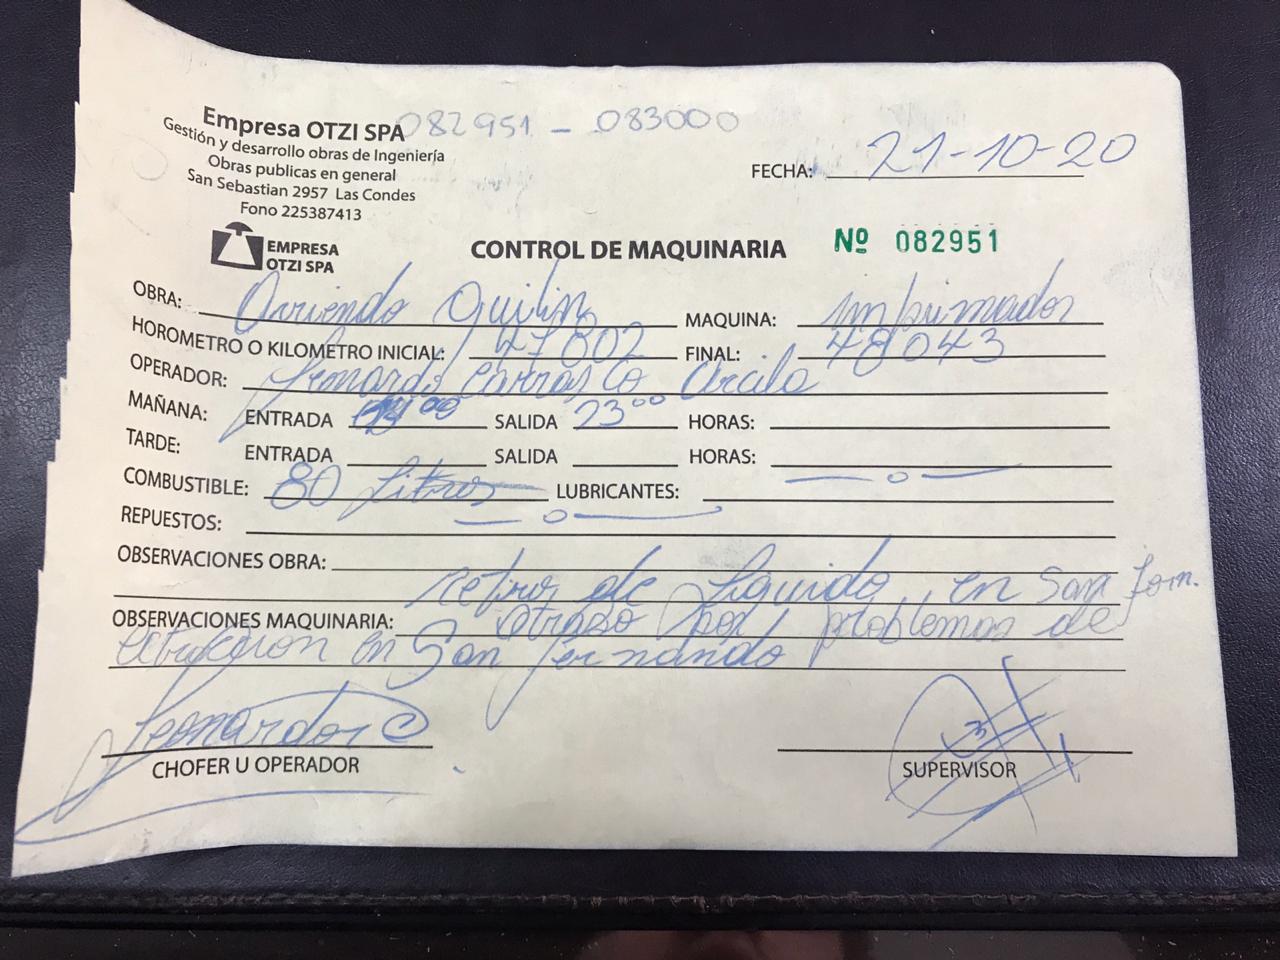 Empresa OTZI SPA 082951 - 083000
Gestión y desarrollo obras de Ingeniería
Obras publicas en general
San Sebastian 2957 Las Condes
Fono 225387413
FECHA: 21-10-20
EMPRESA
OTZI SPA
CONTROL DE MAQUINARIA Nº 082951
OBRA: Arriendo Quilin MAQUINA: Imprimador
HOROMETRO O KILOMETRO INICIAL: 47802 FINAL: 48043
OPERADOR: Leonardo Carrasco
MAÑANA: ENTRADA SALIDA 23⁰⁰ HORAS:
TARDE: ENTRADA SALIDA HORAS:
COMBUSTIBLE: 80 Litros LUBRICANTES: —o—
REPUESTOS: —o—
OBSERVACIONES OBRA:
retiro de Liquido en San
OBSERVACIONES MAQUINARIA: atraso por problemas de
en San Fernando
Leonardo C
CHOFER U OPERADOR
SUPERVISOR